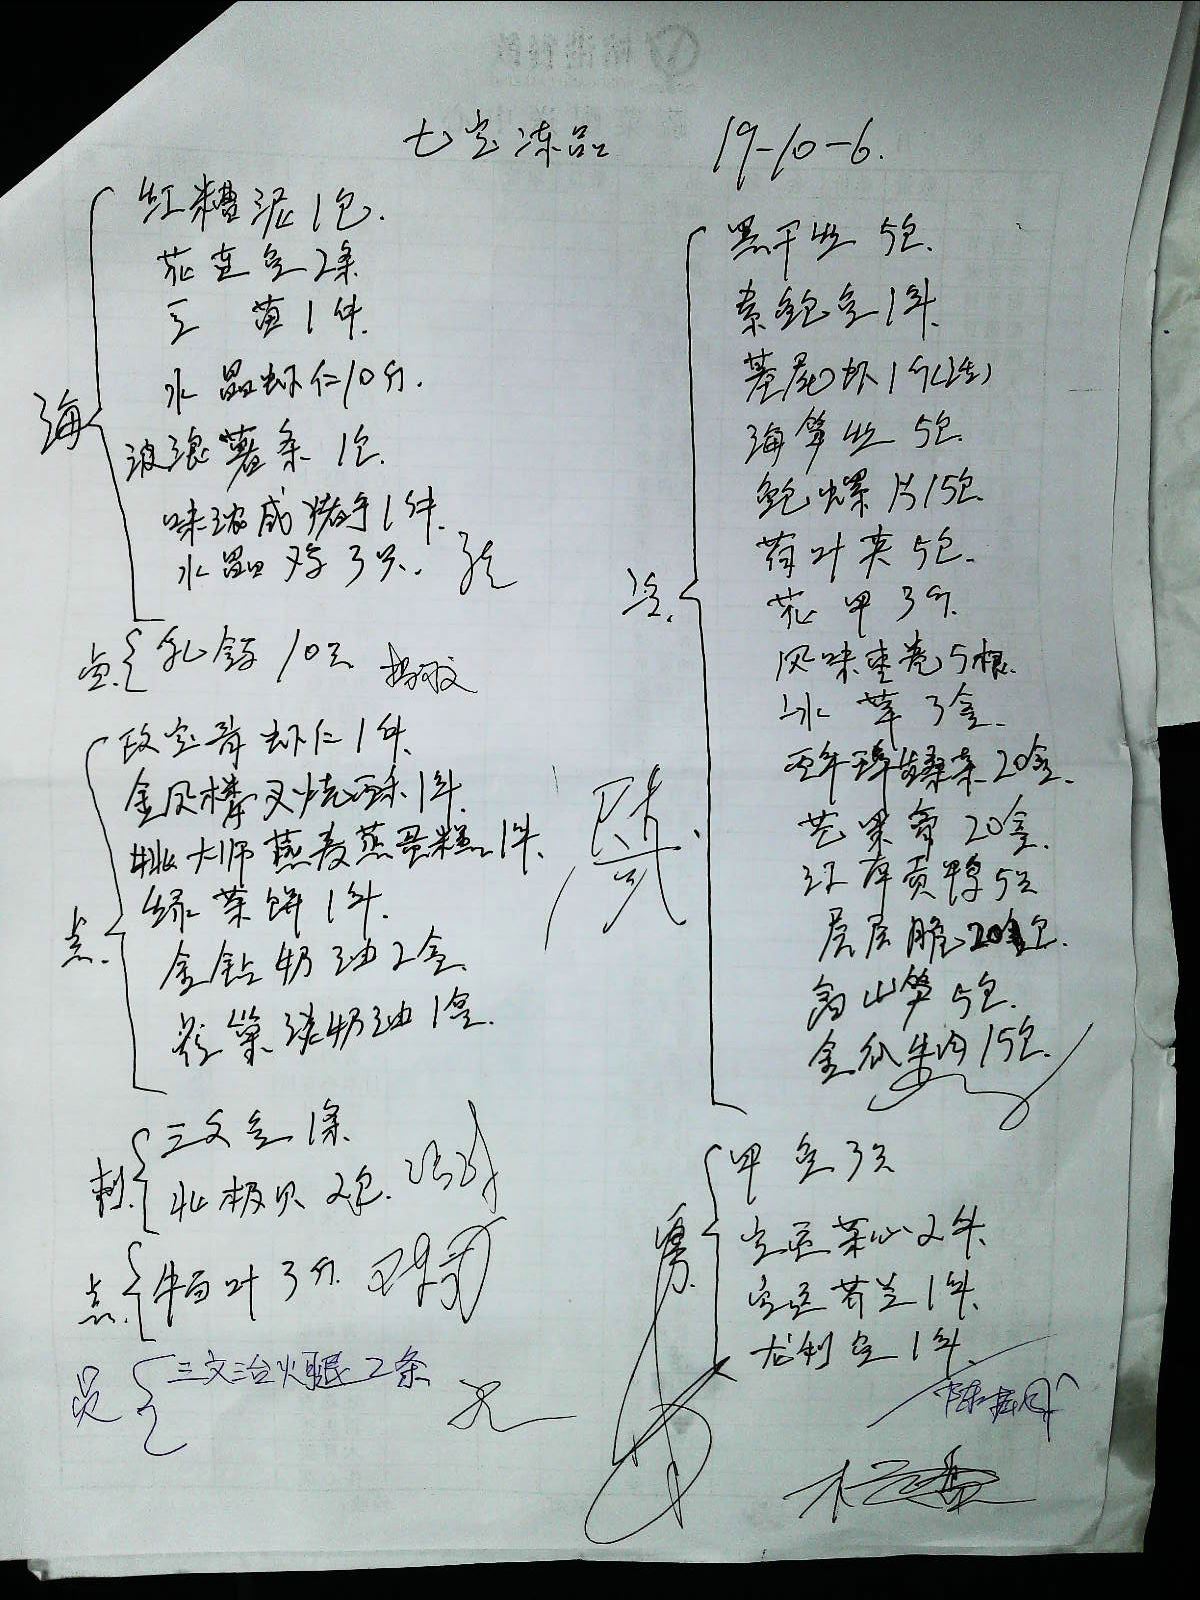 七宝冻品 19-10-6.
海
红糟泥1包.
花连鱼2条
三 苗1件.
水晶虾仁10斤.
波浪薯条 1包.
味浓咸猪手1件.
水晶鸡3只.
点.
乳鸽 10只
点.
青虾仁1件.
金凤楼叉烧酥1件.
桃大师燕麦蒸蛋糕1件.
绿茶饼1件.
金钻奶油2盒.
淡奶油1盒.
刺.
三文鱼1条.
北极贝2包.
点.
牛百叶3斤.
员
三文治火腿2条
冷.
黑千丝 5包.
素鲍鱼1件.
基尾虾1斤(2生)
海笋丝 5包.
鲍螺片15包.
荷叶夹5包.
花甲3斤.
风味枣卷5根.
冰草3盒.
20盒.
芒果 20盒.
贡鸭5只
层层脆20包.
山笋5包.
金瓜牛肉15包.
甲鱼3只
宝运菜心2件.
宝运芥兰1件.
龙利鱼1件.